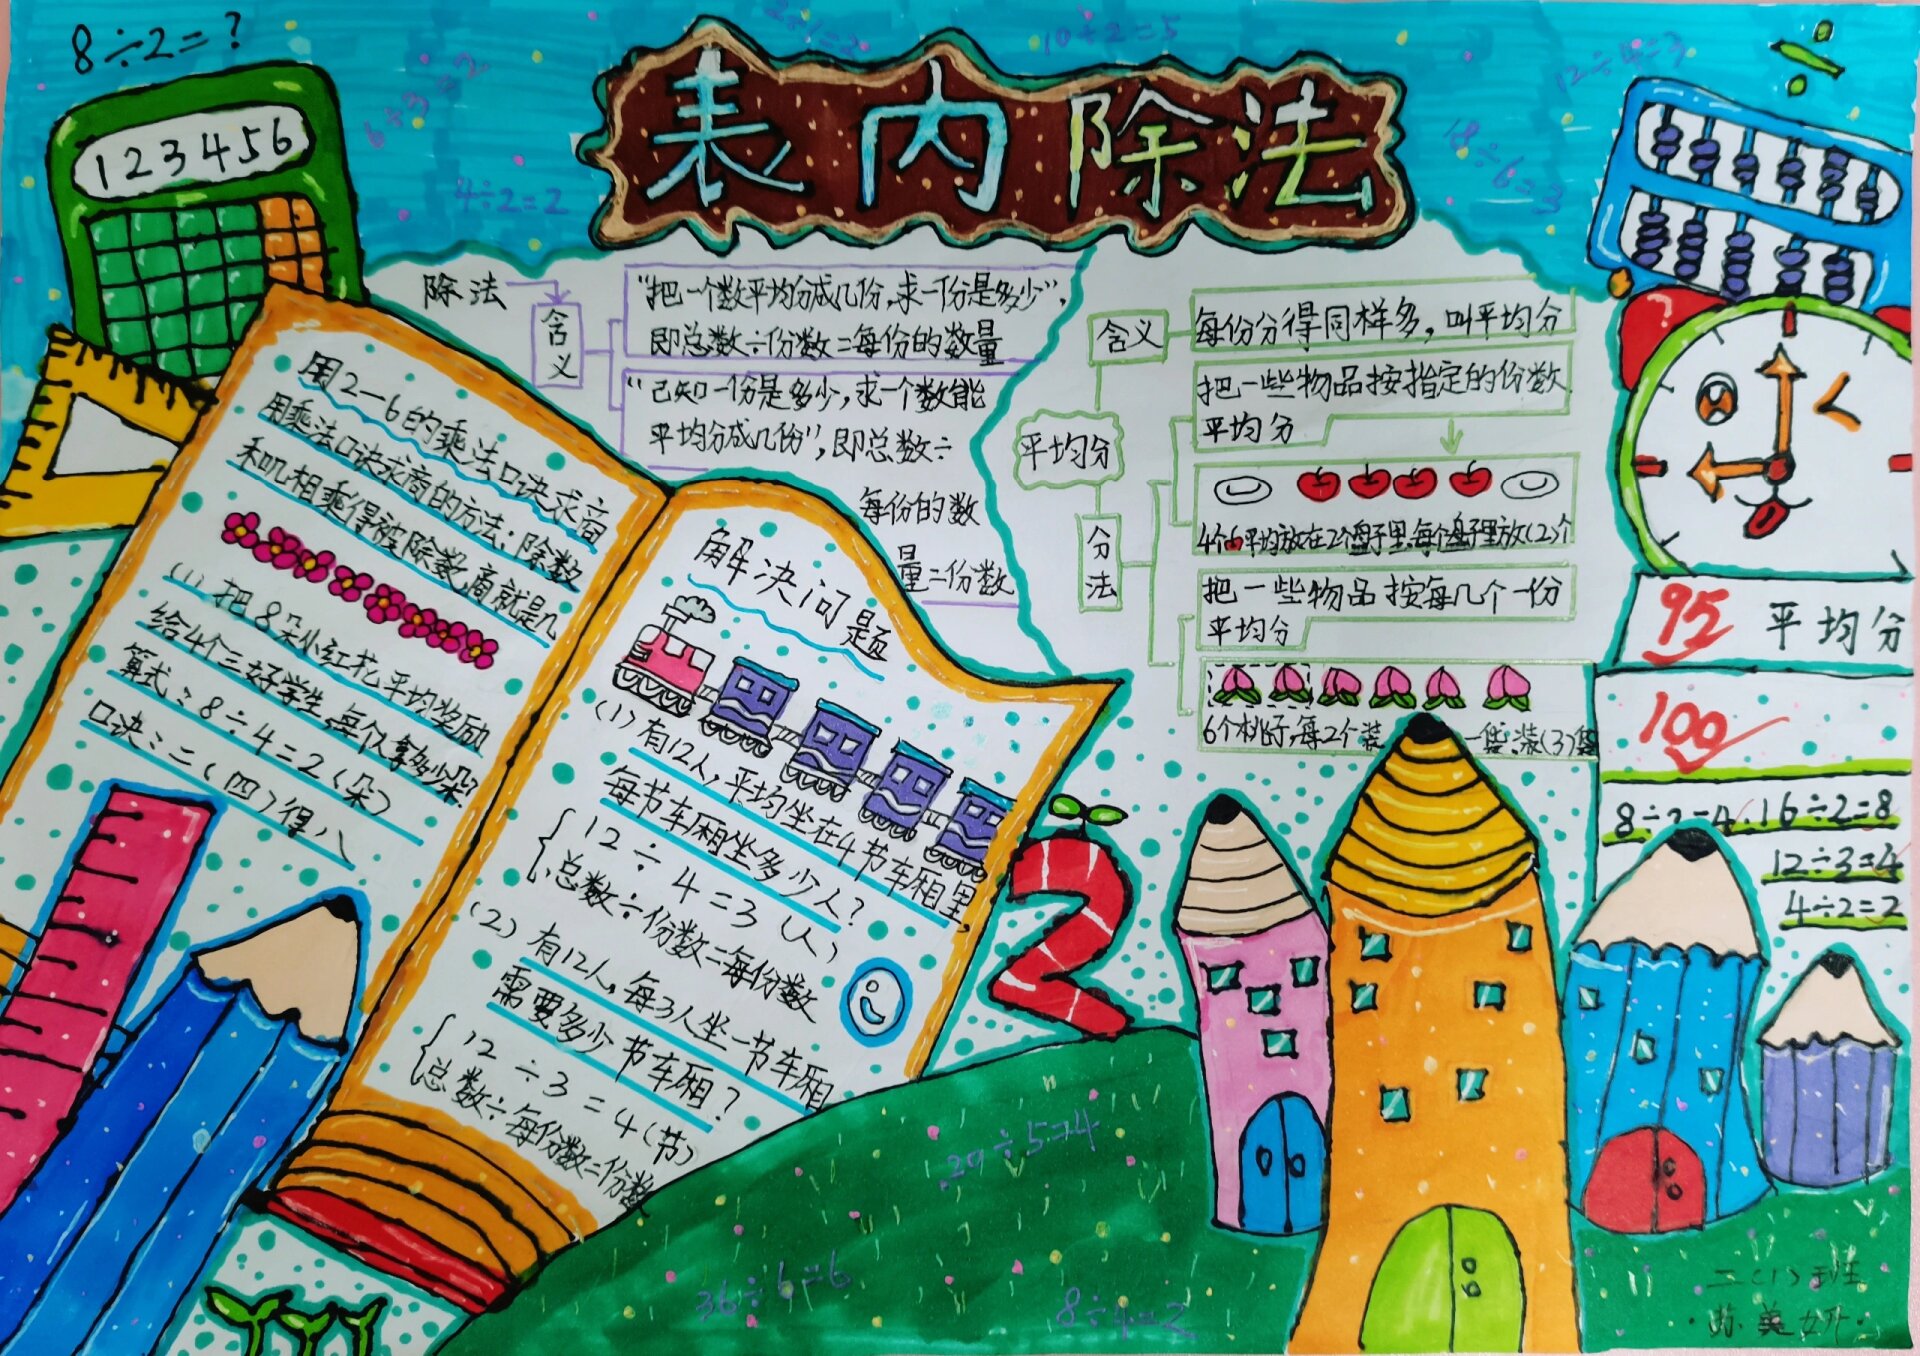 8÷2=?
2÷1=2
10÷2=5
12÷4=3
6÷3=2
4÷2=2
18÷6=3
÷
表内除法
123456
除法
含义
“把一个数平均分成几份,求一份是多少”,
即总数÷份数=每份的数量
“已知一份是多少,求一个数能
平均分成几份”,即总数÷
每份的数
量=份数
平均分
含义
每份分得同样多,叫平均分
分法
把一些物品按指定的份数
平均分
平均放在2个盘子里,每个盘子里放(2)个
把一些物品按每几个一份
平均分
6个桃子,每2个装一袋,装(3)袋
用2—6的乘法口诀求商
用乘法口诀求商的方法:除数
和几相乘得被除数,商就是几
(1)把8朵小红花平均奖励
给4个三好学生,每个人拿多少朵
算式:8÷4=2(朵)
口诀:二(四)得八
解决问题
(1)有12人,平均坐在4节车厢里,
每节车厢坐多少人?
12÷4=3(人)
总数÷份数=每份数
(2)有12人,每3人坐一节车厢
需要多少节车厢?
12÷3=4(节)
总数÷每份数=份数
2
95 平均分
100
8÷2=4 16÷2=8
12÷3=4
4÷2=2
20÷5=4
36÷6=6
8÷4=2
二(1)班